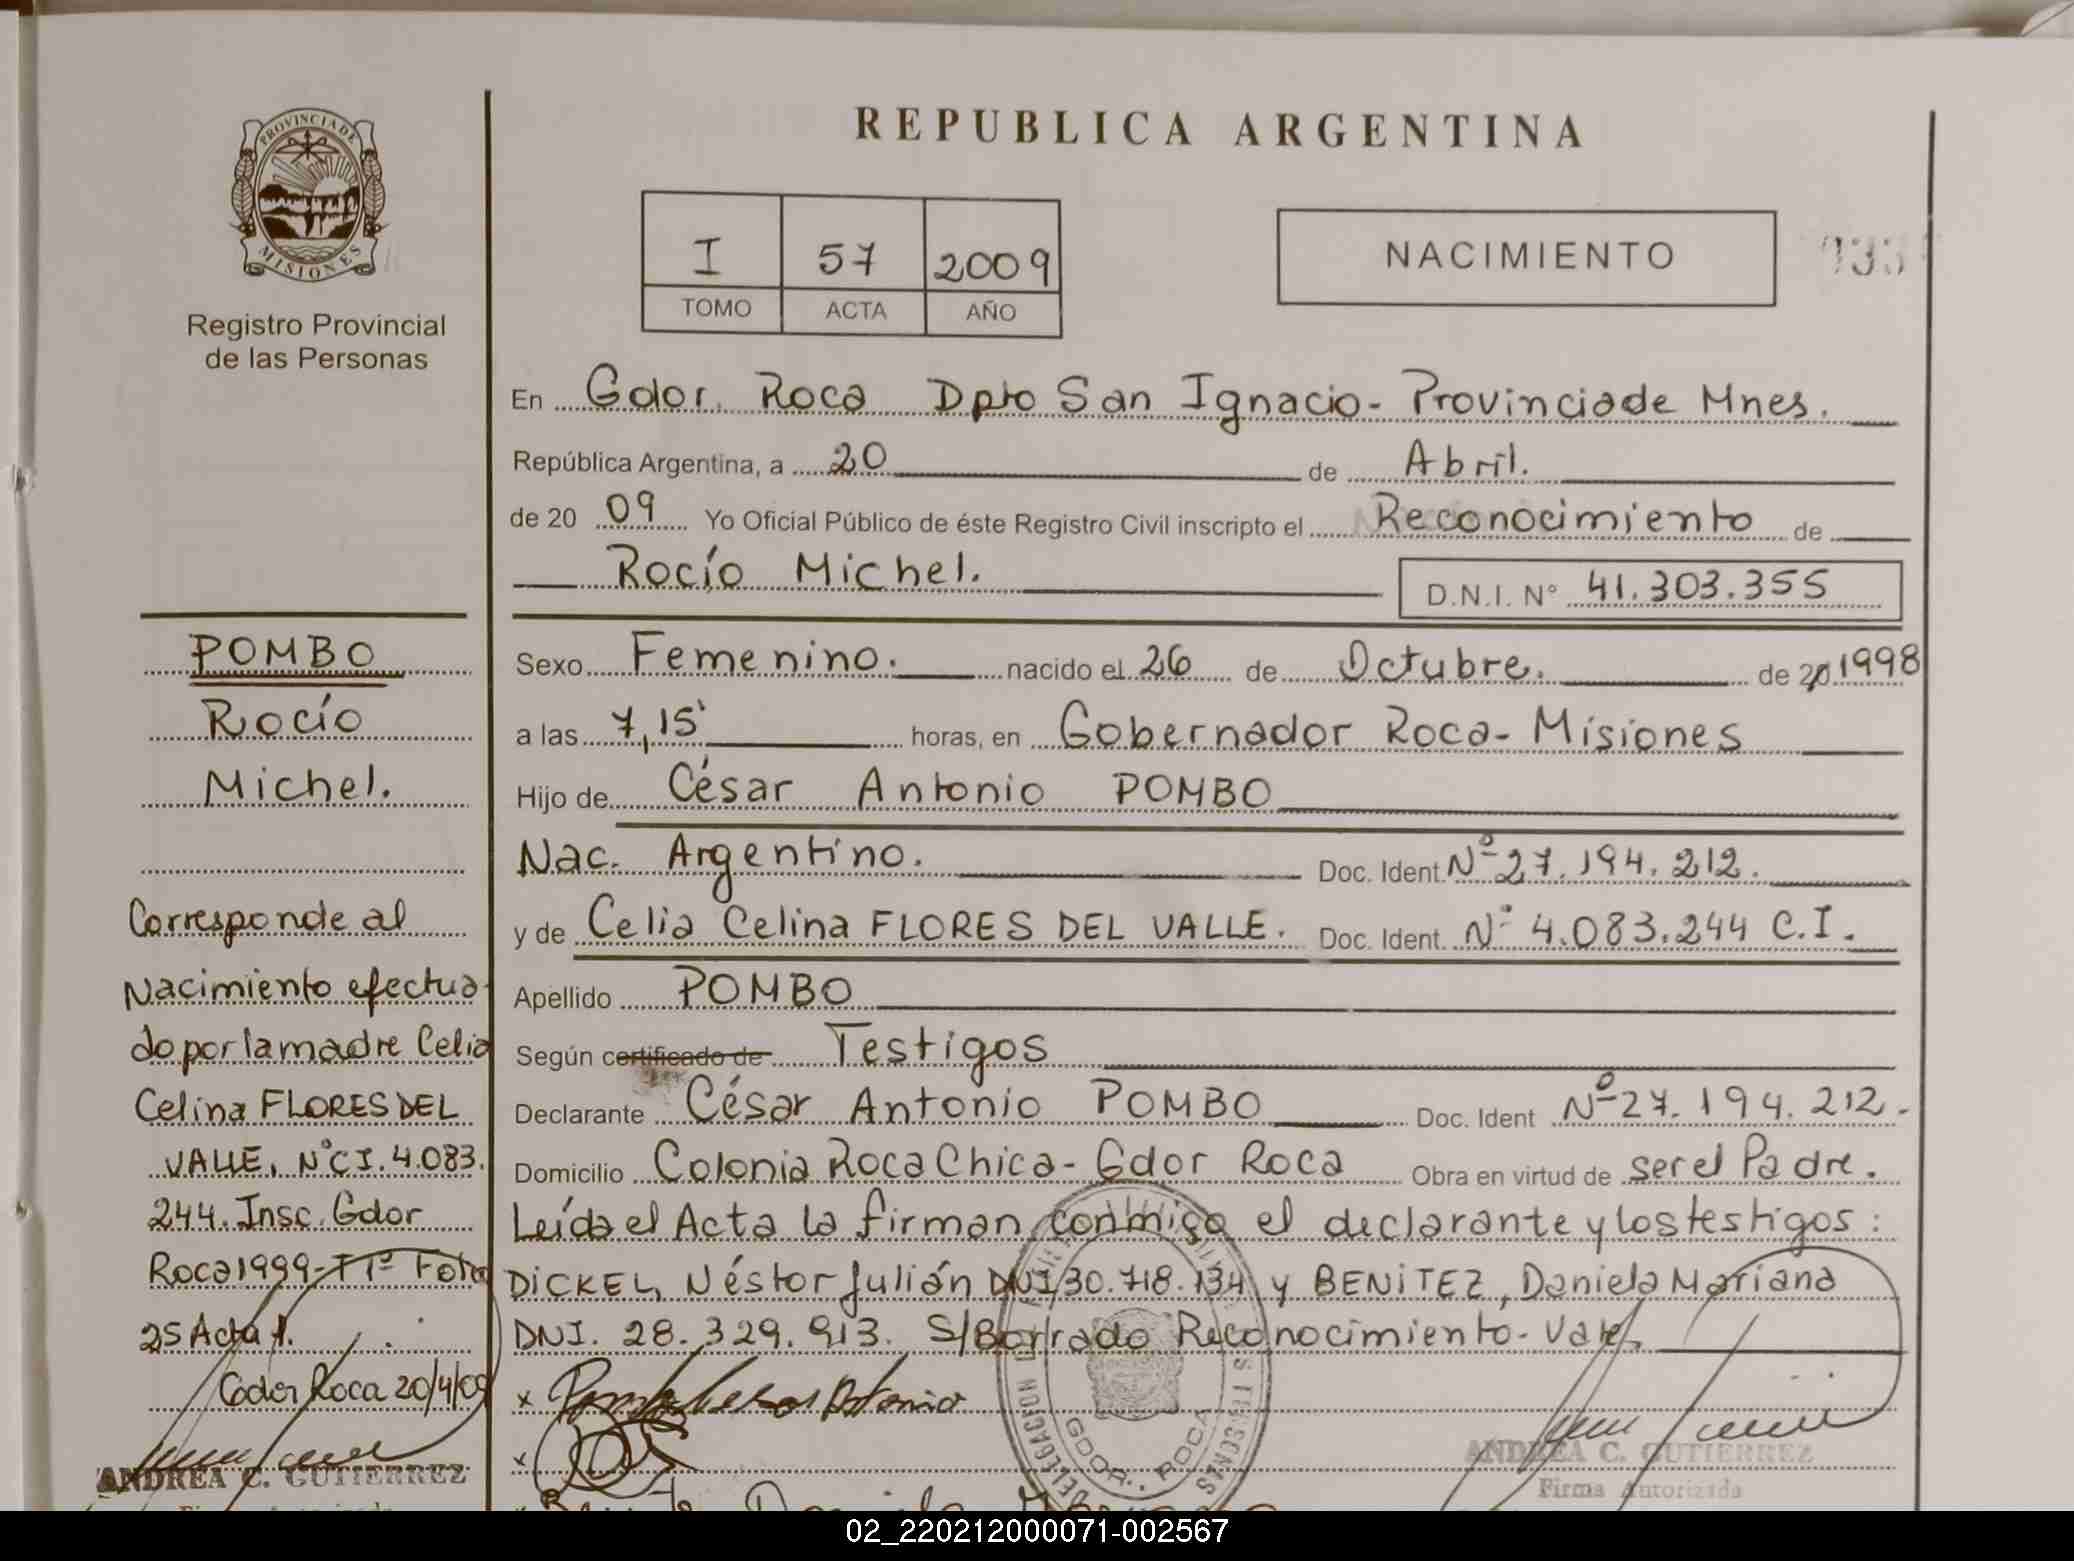 REPUBLICA ARGENTINA
PROVINCIA DE
MISIONES
Registro Provincial
de las Personas
I 57 2009
TOMO ACTA AÑO
NACIMIENTO
En Gdor. Roca Dpto San Ignacio- Provincia de Mnes.
República Argentina, a 20 de Abril.
de 20 09 Yo Oficial Público de éste Registro Civil inscripto el Reconocimiento de
Rocío Michel.
D.N.I. N° 41.303.355
Sexo Femenino. nacido el 26 de Octubre. de 20 1998
a las 7,15' horas, en Gobernador Roca- Misiones
Hijo de César Antonio POMBO
Nac. Argentino. Doc. Ident. Nº 27.194.212.
y de Celia Celina FLORES DEL VALLE. Doc. Ident. Nº 4.083.244 C.I.
Apellido POMBO
Según certificado de Testigos
Declarante César Antonio POMBO Doc. Ident Nº 27.194.212.-
Domicilio Colonia Roca Chica- Gdor Roca Obra en virtud de ser el Padre.
Leída el Acta la firman conmigo el declarante y los testigos:
DICKEL, Néstor Julián DNI 30.718.134 y BENITEZ, Daniela Mariana
DNI. 28.329.913. S/Borrado Reconocimiento- Vale.
x Pombo Cesar Antonio
x
DELEGACION
GDOR. ROCA
MISIONES
ANDREA C. GUTIERREZ
Firma Autorizada
POMBO
Rocío
Michel.
Corresponde al
Nacimiento efectua-
do por la madre Celia
Celina FLORES DEL
VALLE, N° CI. 4.083.
244. Insc. Gdor
Roca 1999- Tº Folio
25 Acta
Gdor Roca 20/4/09
ANDREA C. GUTIERREZ
Firma Autorizada
02_220212000071-002567